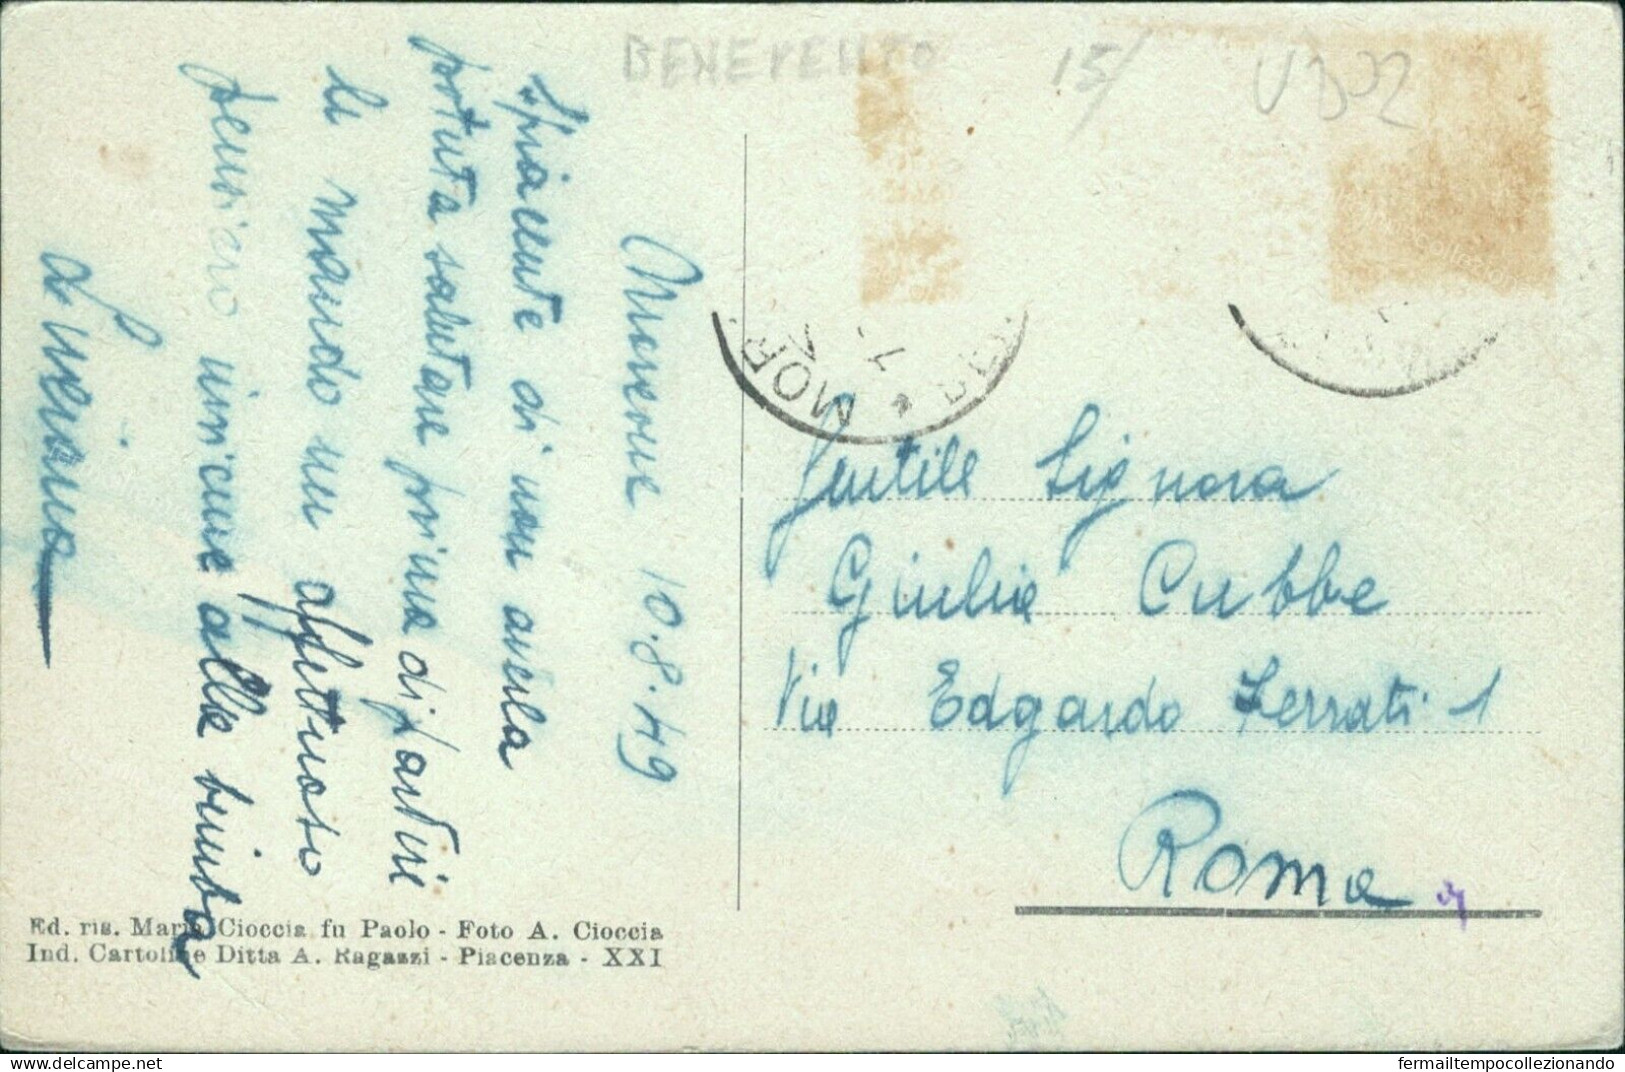 BENEVENTO
15/
UB02
Morcone 10.8.49
Spiacente di non averla
potuta salutare prima di partire
le mando un affettuoso
pensiero insieme alla bimba
Luciana
MOR
Gentile Signora
Giulia Cubbe
Via Edgardo Ferrati 1
Roma
Ed. ris. Maria Cioccia fu Paolo - Foto A. Cioccia
Ind. Cartoline Ditta A. Ragazzi - Piacenza - XXI
fermailtempocollezionando